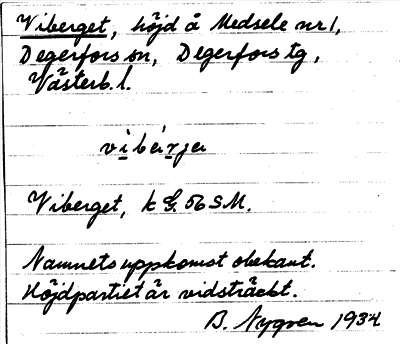 Viberget, höjd å Medsele nr 1,
Degerfors sn, Degerfors tg,
Västerb. l.
vibärjer
Viberget, k G. 56 S M.
Namnets uppkomst obekant.
Höjdpartiet är vidsträckt.
B. Nygren 1934